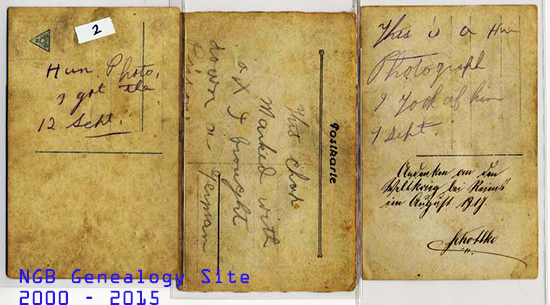 2
Hun. Photo,
I got the
12 Sept.
Postkarte
This chap
Marked with
a X I brought
down German
This is a Hun
Photograph
I Took of him
Sept.
Andenken an den
Weltkrieg bei Reims
im August 1917.
NGB Genealogy Site
2000 - 2015